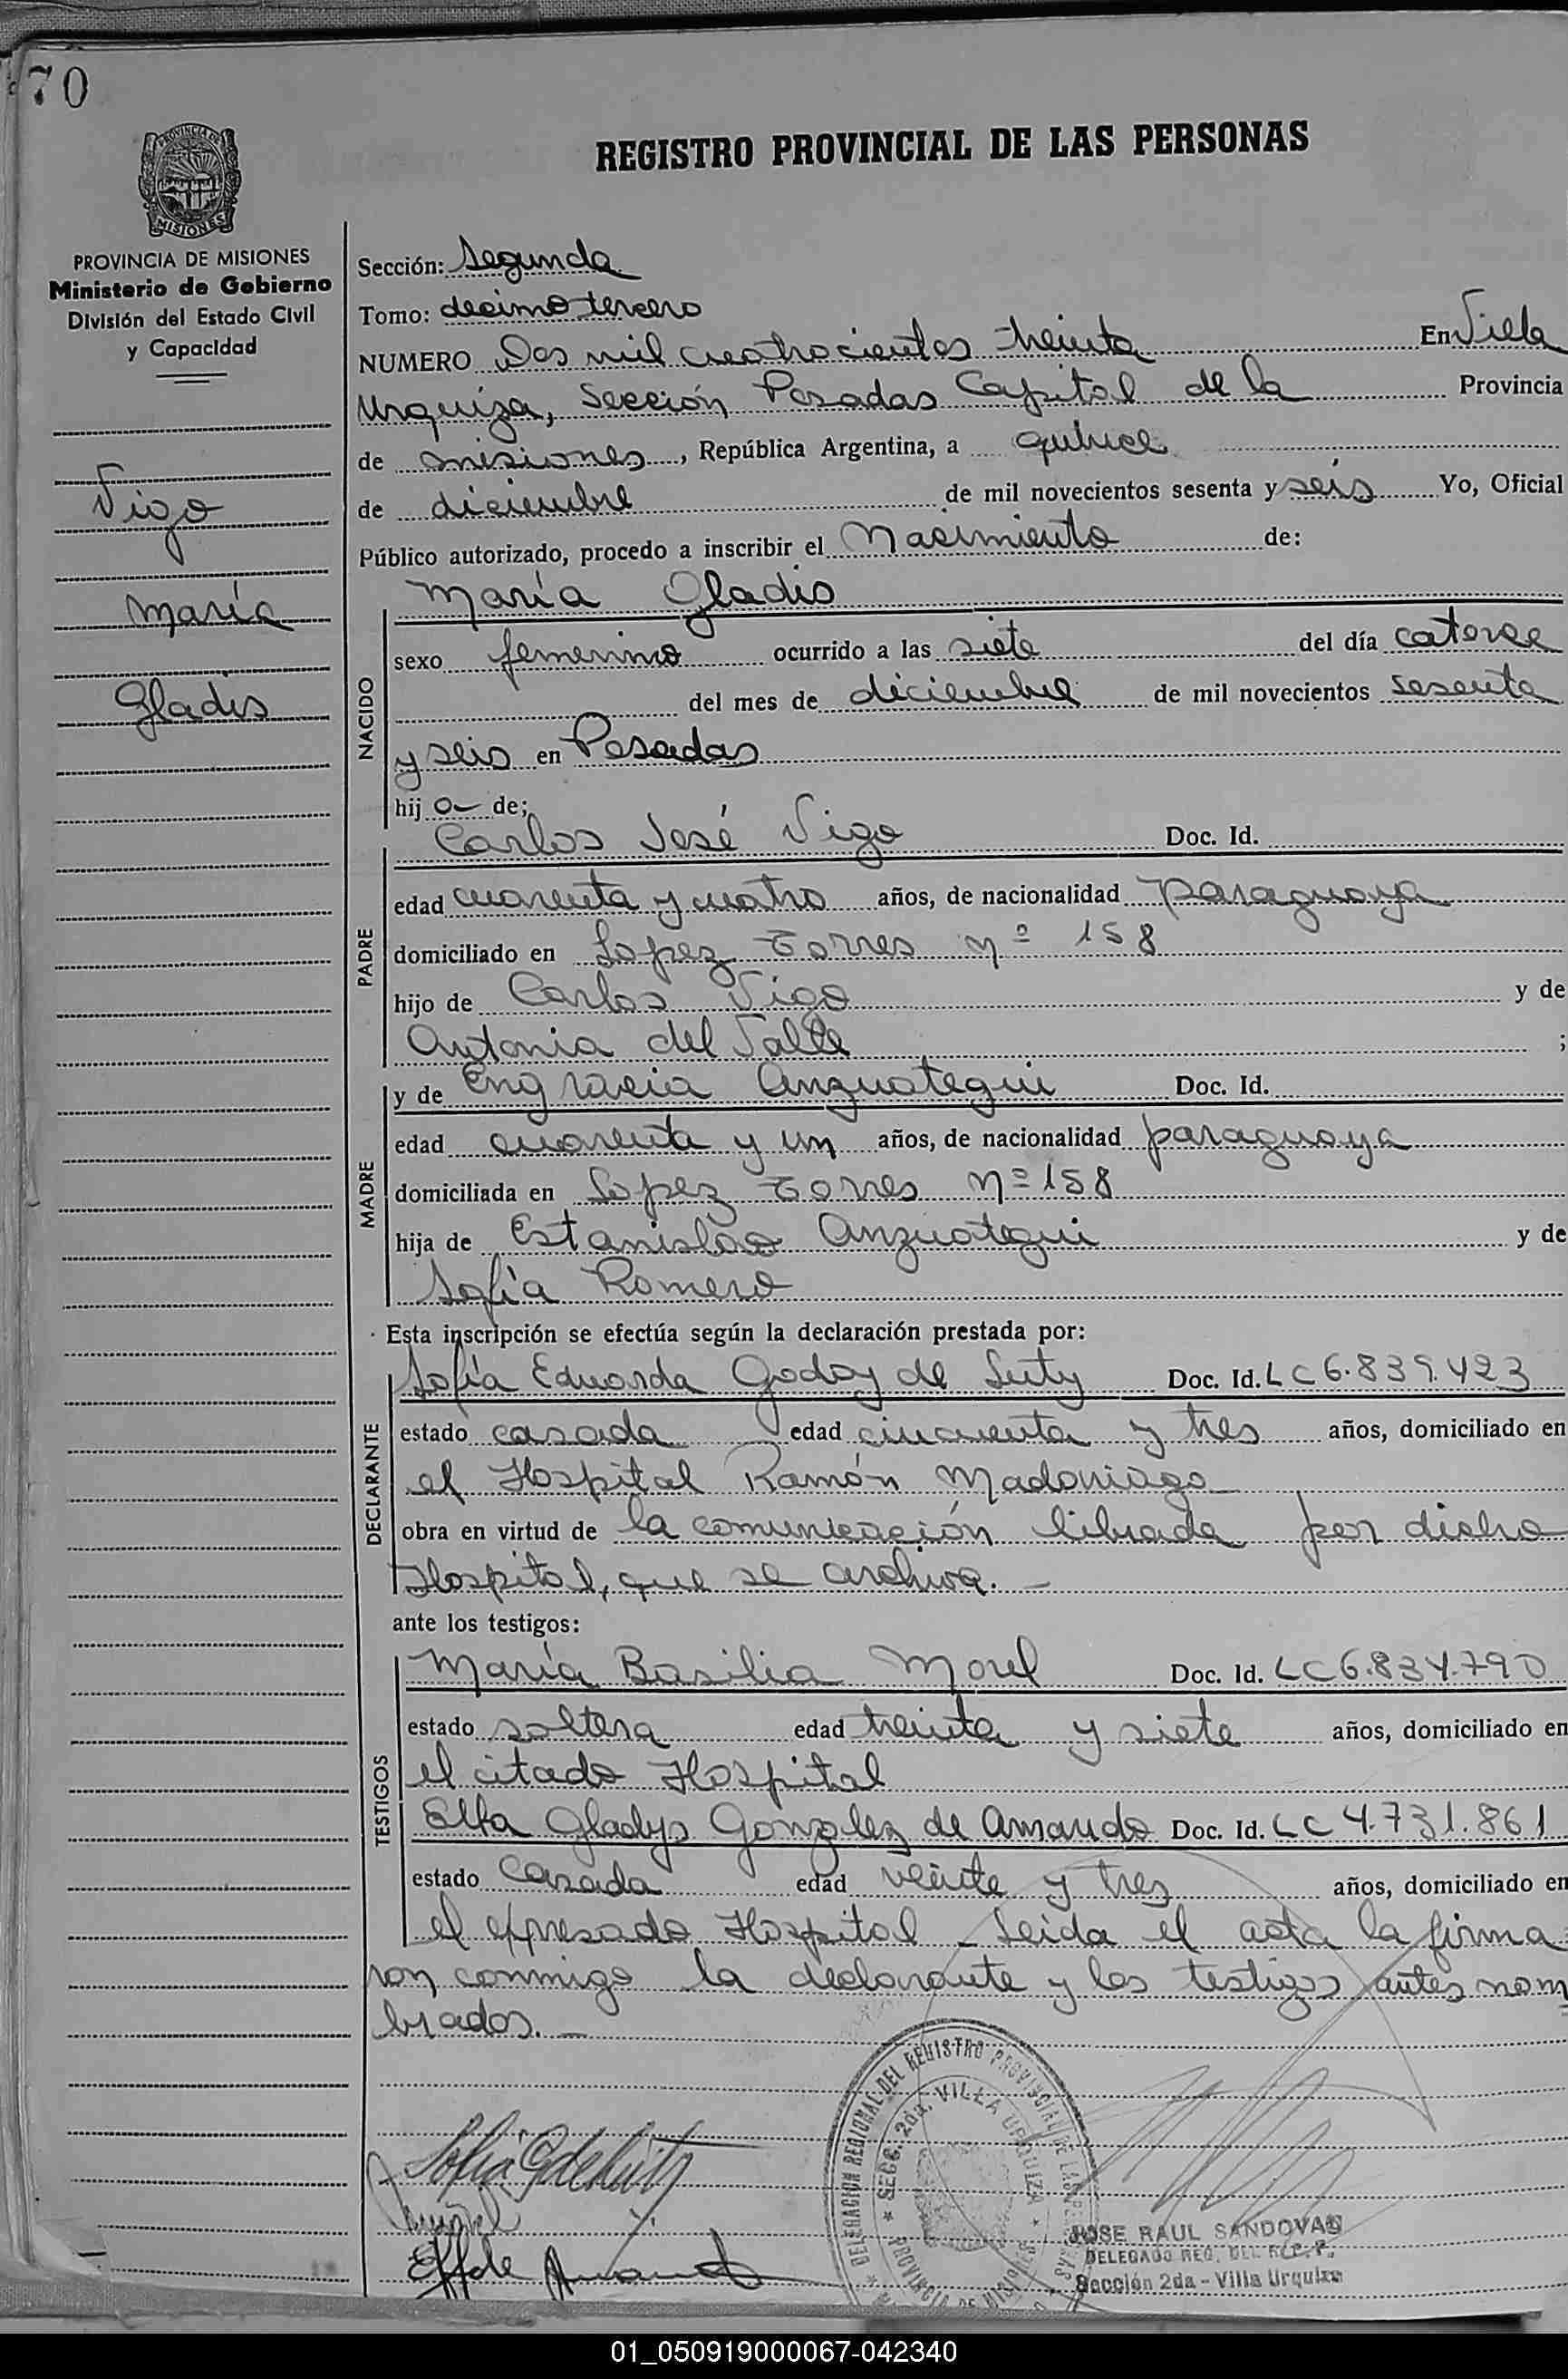 70
REGISTRO PROVINCIAL DE LAS PERSONAS
PROVINCIA DE MISIONES
Ministerio de Gobierno
División del Estado Civil
y Capacidad
Vigo
María
Gladis
Sección: Segunda
Tomo: decimo tercero
NUMERO Dos mil cuatrocientos treinta En Villa
Urquiza, Sección Posadas Capital de la Provincia
de misiones, República Argentina, a quince
de diciembre de mil novecientos sesenta y seis Yo, Oficial
Público autorizado, procedo a inscribir el Nacimiento de:
María Gladis
NACIDO
sexo femenino ocurrido a las siete del día catorce
del mes de diciembre de mil novecientos sesenta
y seis en Posadas
hij a de;
Carlos José Vigo Doc. Id.
PADRE
edad cuarenta y cuatro años, de nacionalidad paraguaya
domiciliado en Lopez Torres nº 158
hijo de Carlos Vigo y de
Antonia del Valle ;
MADRE
y de Engracia Anzuategui Doc. Id.
edad cuarenta y un años, de nacionalidad paraguaya
domiciliada en Lopez Torres nº 158
hija de Estanislao Anzuategui y de
Sofía Romero
Esta inscripción se efectúa según la declaración prestada por:
DECLARANTE
Sofía Eduarda Godoy de Luty Doc. Id. LC 6.839.423
estado casada edad cincuenta y tres años, domiciliado en
el Hospital Ramón Madariaga
obra en virtud de la comunicación librada por dicho
Hospital, que se archiva.
ante los testigos:
TESTIGOS
María Basilia Morel Doc. Id. LC 6.834.790
estado soltera edad treinta y siete años, domiciliado en
el citado Hospital
Elfa Gladys Gonzalez de Amando Doc. Id. LC 4.731.861
estado casada edad veinte y tres años, domiciliado en
el expresado Hospital - Leida el acta la firma
ron conmigo la declarante y los testigos antes nom
brados.
DELEGACION REGIONAL DEL REGISTRO PROVINCIAL DE LAS
SECC. 2da. VILLA URQUIZA
PROVINCIA DE MISIONES
JOSE RAUL SANDOVAL
DELEGADO REG. DEL R.P.P.
Sección 2da - Villa Urquiza
01_050919000067-042340